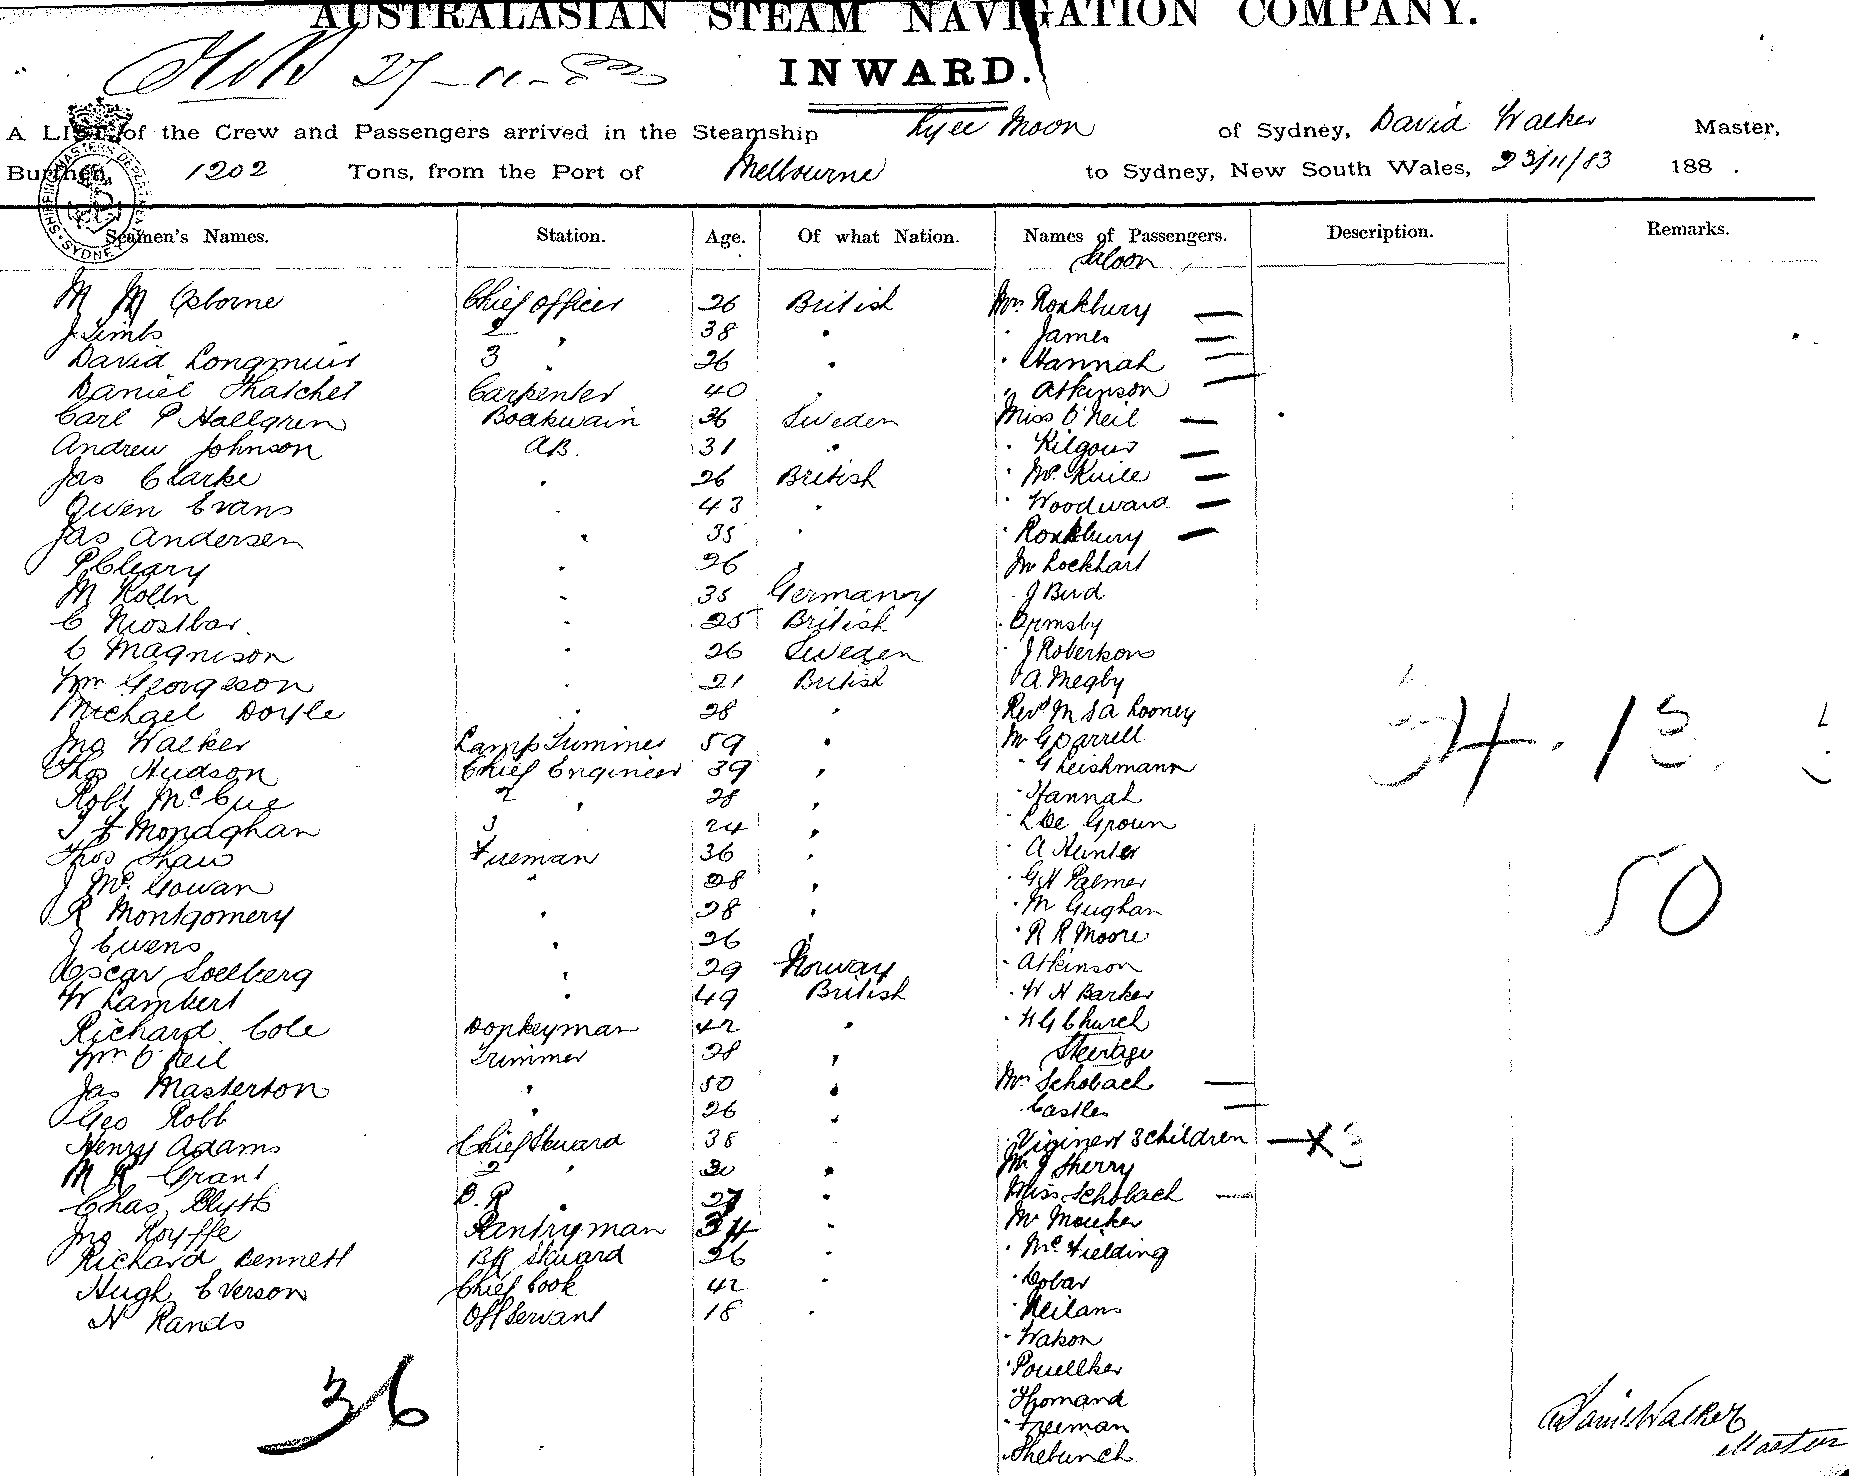 AUSTRALASIAN STEAM NAVIGATION COMPANY.
27-11-83
INWARD.
A LIST of the Crew and Passengers arrived in the Steamship Lyee Moon of Sydney, David Walker Master,
Burthen, 1202 Tons, from the Port of Melbourne to Sydney, New South Wales, 23/11/83 188 .
Seamen's Names. Station. Age. Of what Nation. Names of Passengers. Description. Remarks.
Saloon
M M Osborne Chief Officer 26 British Mrs Roxkbury
J Limbs 2 " 38 " " James
David Longmuir 3 " 26 " " Hannah
Daniel Thatcher Carpenter 40 " " Atkinson
Carl P Hallgren Boatswain 36 Sweden Miss O'Neil
Andrew Johnson AB. 31 " " Kilgour
Jas Clarke " 26 British "
Owen Evans " 43 " " Woodward
Jas Andersen " 35 " " Roxkbury
P Cleary " 26 " Mr Lockhart
M Kolln " 35 Germany " J Bird
C Mostbar " 25 British " Ormsby
C Magnison " 26 Sweden " J Robertson
Wm Georgeson " 21 British " A Megby
Michael Doyle " 28 " Revd M S A Looney
Jno Walker Lamp Trimmer 59 " Mr G Parrell
Thos Hudson Chief Engineer 39 " " G Leishmann
Robt McCue 2 " 28 " " Hannah
T F Monaghan 3 24 " " L De Groun
Thos Shaw Fireman 36 " " A Hunter
J McGowan " 28 " " G H Palmer
R Montgomery " 28 " " M Gughan
J Owens " 26 " " R R Moore
Oscar Soelberg " 29 Norway " Atkinson
W Lambert " 49 British " W H Barker
Richard Cole Donkeyman 42 " " H G Church
Wm O'Neil Trimmer 28 " Steerage
Jas Masterton " 50 " Mrs Schobach
Geo Robb " 26 " " Castles
Henry Adams Chief Steward 38 " Viginers 3 children X 3
M R Grant 2 " 30 " Mr J Sherry
Chas Blyth " 27 " Miss Schobach
Jno Royffe Pantryman 34 " Mr Mouker
Richard Bennett BR Steward 26 " " McFielding
Hugh Everson Chief Cook 42 " " Cobar
N Rands Off Servant 18 " " Neilans
" Watson
" Pouellker
" Thomand
" Freeman
" Shebunch
34. 13
50
36
David Walker
Master